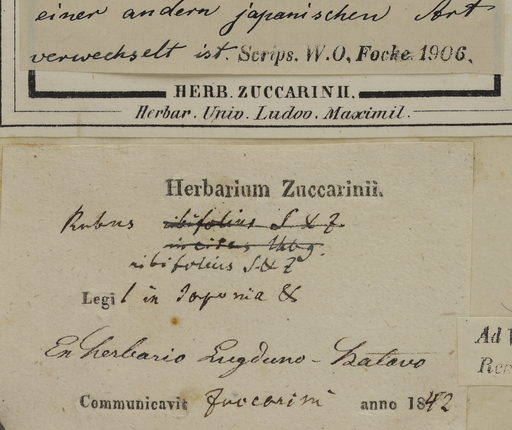 einer andern japanischen Art
verwechselt ist. Scrips. W.O. Focke. 1906.
HERB. ZUCCARINII.
Herbar. Univ. Ludov. Maximil.
Herbarium Zuccarinii.
Rubus ribifolius S & Z.
incisus Thbg.
ribifolius S & Z
Legit in Japonia &
Ex herbario Lugduno-Batavo
Communicavit Zuccarini anno 1842
Ad